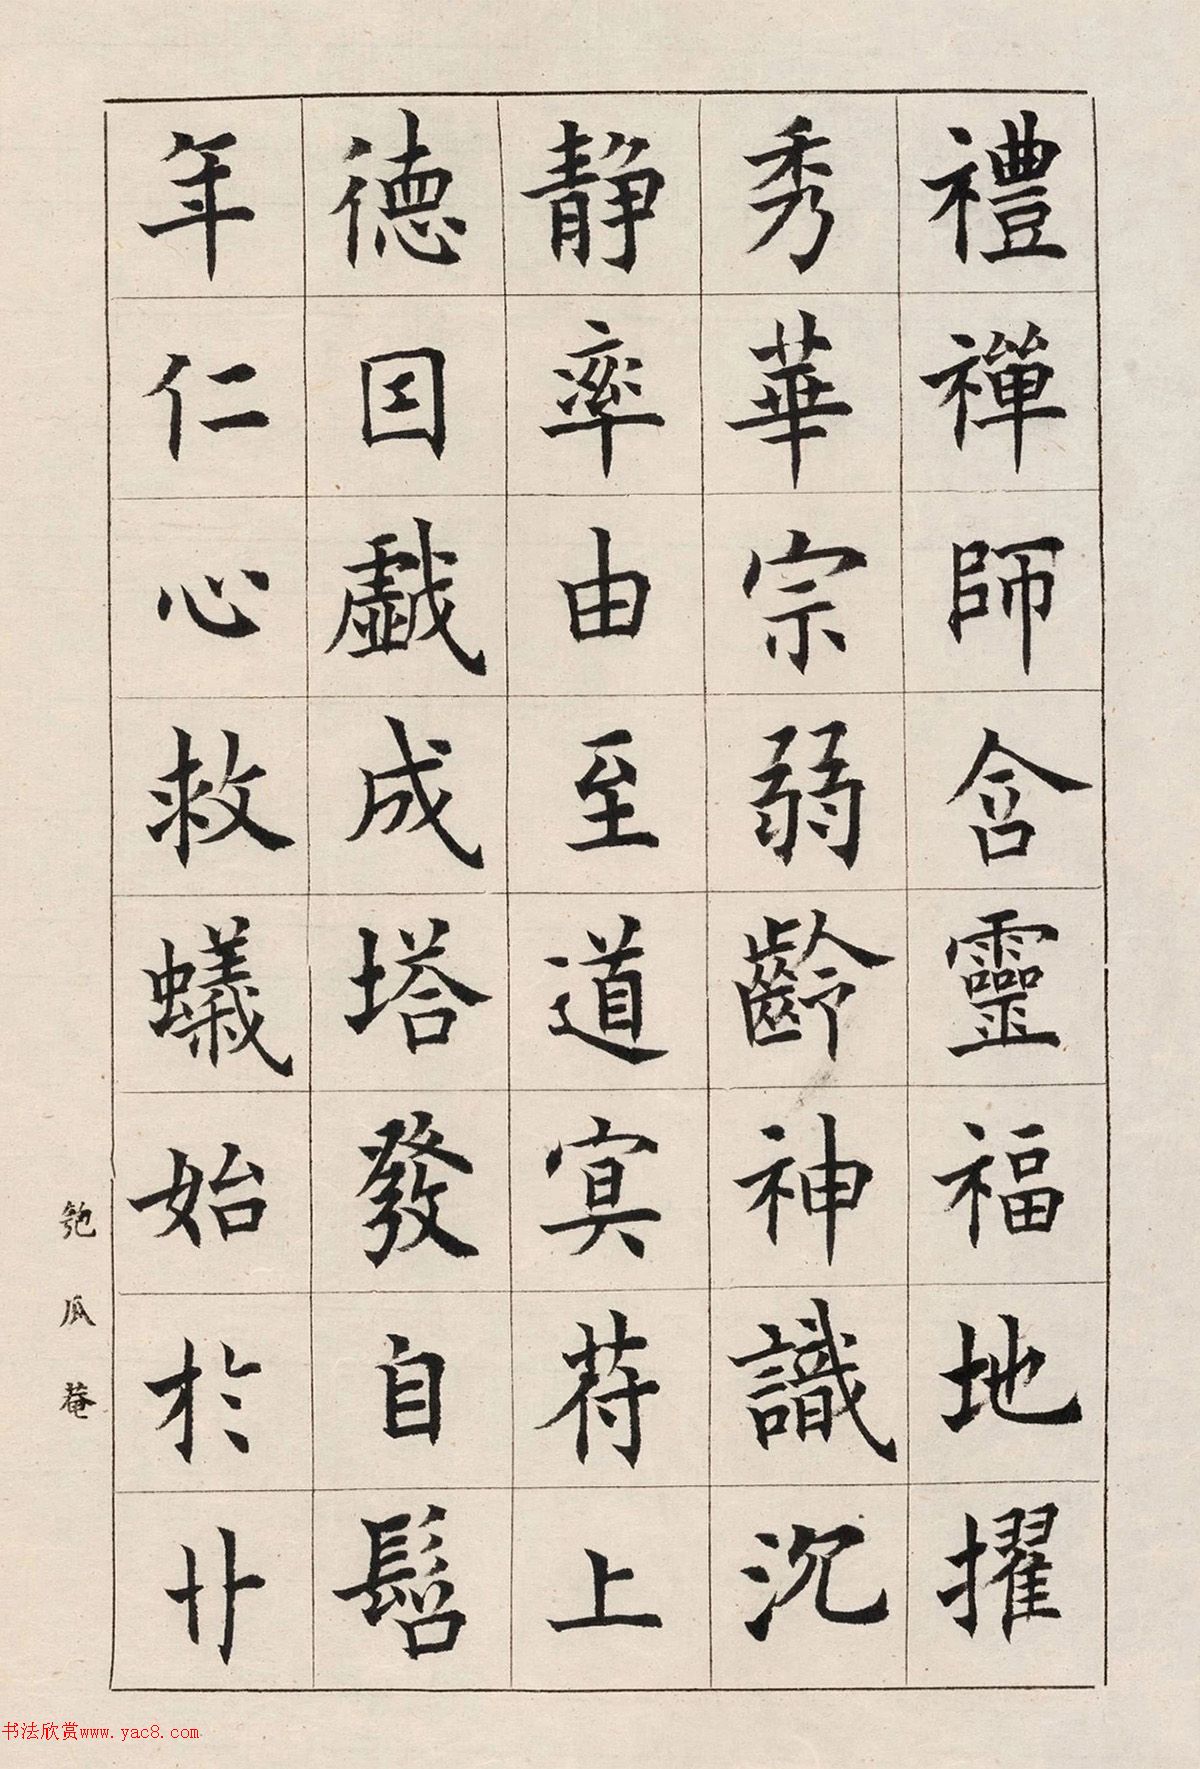 禮禪師含靈福地擢
秀華宗弱齡神識沉
静率由至道㝠苻上
德因戲成塔發自髫
年仁心救蟻始於丱
匏瓜菴
书法欣赏www.yac8.com